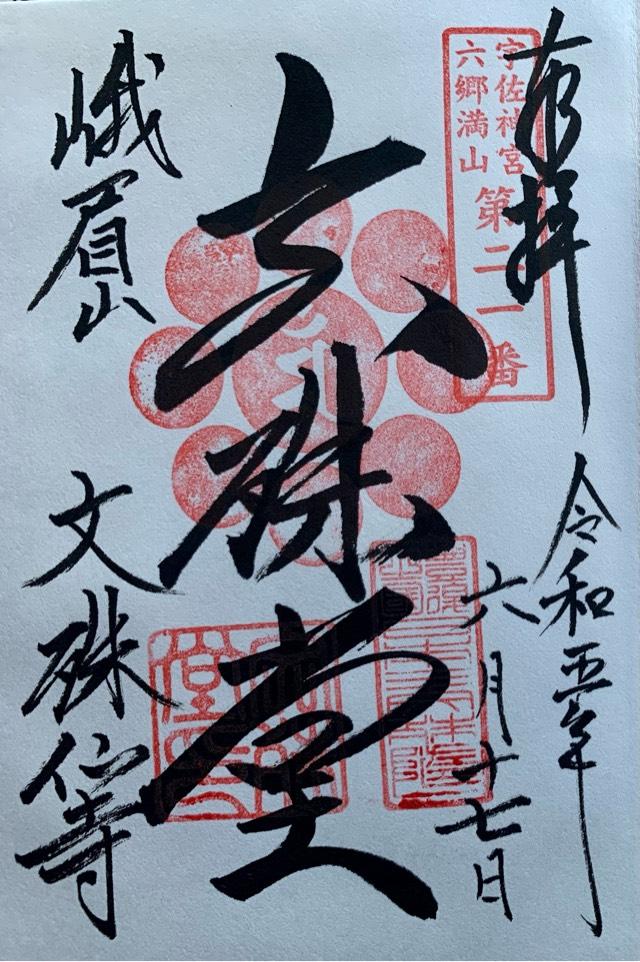 奉拝
令和五年
六月十七日
宇佐神宮
六郷満山
第二一番
文殊堂
峨眉山
文殊仙寺